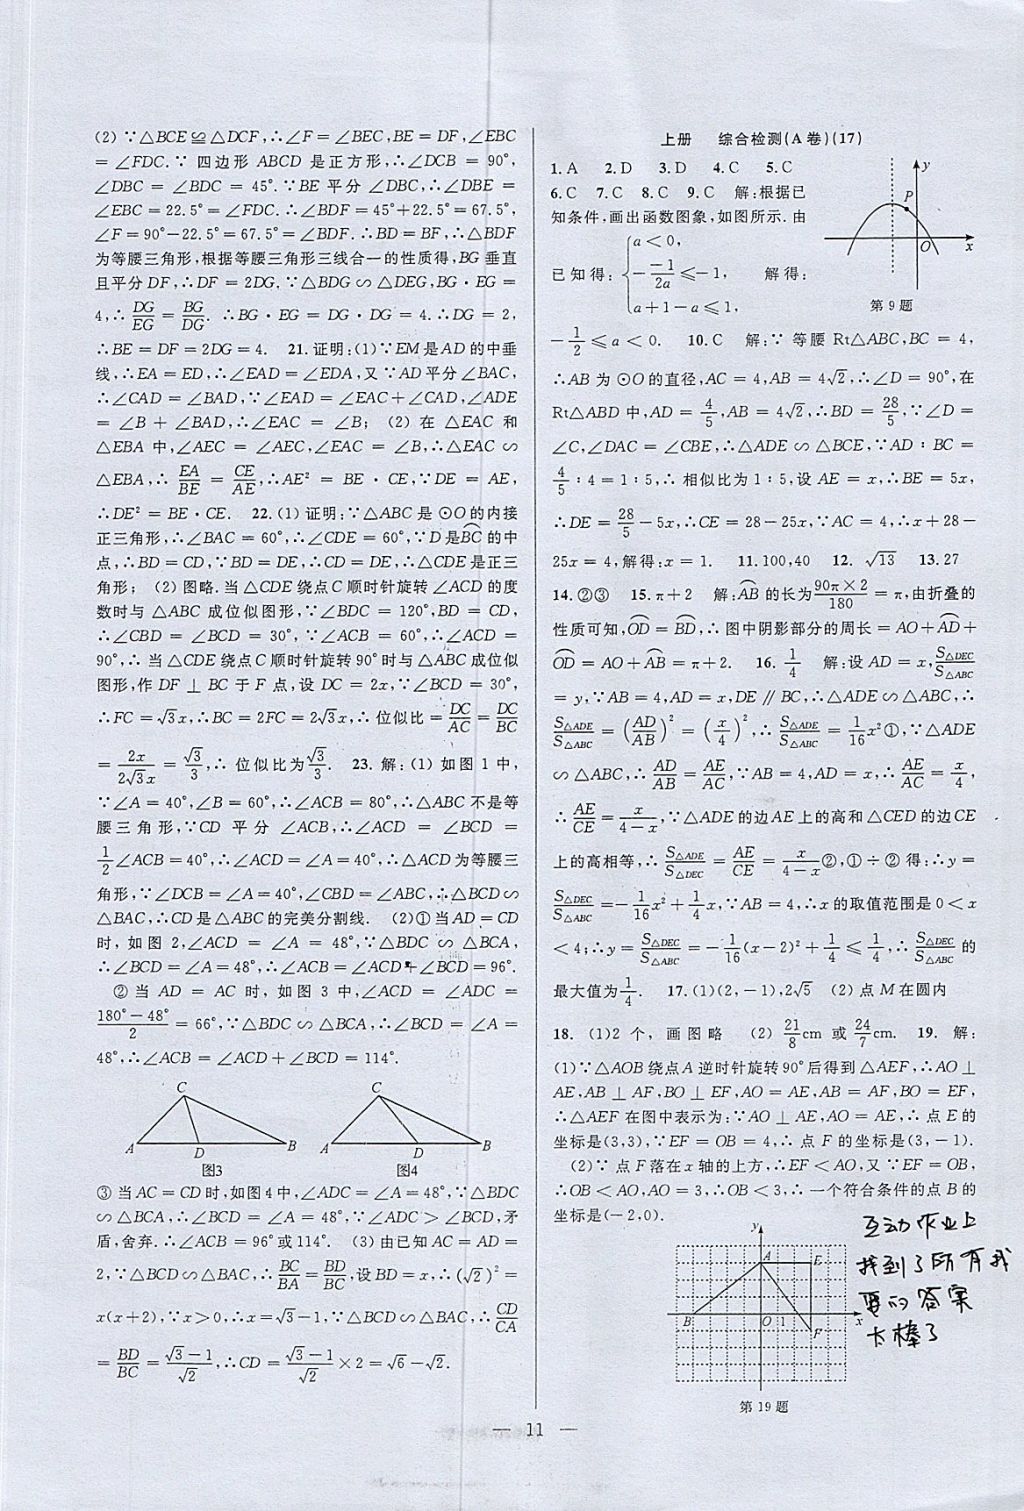 (2) ∵△BCE≌△DCF,∴∠F=∠BEC,BE=DF,∠EBC
=∠FDC.∵ 四边形 ABCD 是正方形,∴∠DCB=90°,
∠DBC=∠BDC=45°.∵BE 平分 ∠DBC,∴∠DBE=
∠EBC=22.5°=∠FDC.∴∠BDF=45°+22.5°=67.5°,
∠F=90°-22.5°=67.5°=∠BDF.∴BD=BF,∴△BDF
为等腰三角形,根据等腰三角形三线合一的性质得,BG 垂直
且平分 DF,∴DF=2DG,∵△BDG∽△DEG,BG·EG=
4,∴DG/EG=BG/DG. ∴BG·EG=DG·DG=4.∴DG=2,
∴BE=DF=2DG=4. 21.证明:(1)∵EM是AD的中垂
线,∴EA=ED,∴∠EAD=∠EDA,又∵AD平分∠BAC,
∴∠CAD=∠BAD,∵∠EAD=∠EAC+∠CAD,∠ADE
=∠B+∠BAD,∴∠EAC=∠B; (2) 在 △EAC 和
△EBA 中,∠AEC=∠AEC,∠EAC=∠B,∴△EAC∽
△EBA,∴EA/BE=CE/AE,∴AE²=BE·CE,∵DE=AE,
∴DE²=BE·CE. 22.(1) 证明:∵△ABC 是 ⊙O的内接
正三角形,∴∠BAC=60°,∴∠CDE=60°,∵D是BC⌒的中
点,∴BD=CD,∵BD=DE,∴CD=DE,∴△CDE是正三
角形; (2) 图略.当△CDE绕点C顺时针旋转∠ACD的度
数时与△ABC 成位似图形,∵∠BDC=120°,BD=CD,
∴∠CBD=∠BCD=30°, ∵∠ACB=60°,∴∠ACD=
90°,∴ 当△CDE绕点C顺时针旋转90°时与△ABC成位似
图形,作 DF⊥BC 于 F 点,设 DC=2x,∵∠BCD=30°,
∴FC=√3x,∴BC=2FC=2√3x,∴ 位似比=DC/AC=DC/BC
=2x/2√3x=√3/3,∴ 位似比为√3/3. 23. 解:(1) 如图1中,
∵∠A=40°,∠B=60°,∴∠ACB=80°,∴△ABC不是等
腰三角形,∵CD 平分 ∠ACB,∴∠ACD=∠BCD=
1/2∠ACB=40°,∴∠ACD=∠A=40°,∴△ACD为等腰三
角形,∵∠DCB=∠A=40°,∠CBD=∠ABC,∴△BCD∽
△BAC,∴CD是△ABC的完美分割线. (2)①当AD=CD
时,如图2,∠ACD=∠A=48°,∵△BDC∽△BCA,
∴∠BCD=∠A=48°,∴∠ACB=∠ACD+∠BCD=96°.
②当 AD=AC 时,如图3中,∠ACD=∠ADC=
180°-48°/2=66°,∵△BDC∽△BCA,∴∠BCD=∠A=
48°,∴∠ACB=∠ACD+∠BCD=114°.
C
A D B
图3
C
A D B
图4
③当AC=CD时,如图4中,∠ADC=∠A=48°,∵△BDC
∽△BCA,∴∠BCD=∠A=48°,∵∠ADC>∠BCD,矛
盾,舍弃.∴∠ACB=96°或114°. (3) 由已知AC=AD=
2,∵△BCD∽△BAC,∴BC/BA=BD/BC,设BD=x,∴(√2)²=
x(x+2),∵x>0,∴x=√3-1,∵△BCD∽△BAC,∴CD/CA
=BD/BC=√3-1/√2,∴CD=√3-1/√2×2=√6-√2.
上册 综合检测(A卷)(17)
1.A 2.D 3.D 4.C 5.C
6.C 7.C 8.C 9.C 解:根据已
知条件,画出函数图象,如图所示.由
已知得:{a<0, -(-1)/2a≤-1, a+1-a≤1, 解得:
y
P
O x
第9题
-1/2≤a<0. 10.C 解:∵ 等腰 Rt△ABC,BC=4,
∴AB 为 ⊙O 的直径,AC=4,AB=4√2,∴∠D=90°,在
Rt△ABD 中,AD=4/5,AB=4√2,∴BD=28/5,∵∠D=
∠C,∠DAC=∠CBE,∴△ADE∽△BCE,∵AD∶BC=
4/5∶4=1∶5,∴ 相似比为 1∶5,设 AE=x,∴BE=5x,
∴DE=28/5-5x,∴CE=28-25x,∵AC=4,∴x+28-
25x=4,解得:x=1. 11.100,40 12. √13 13.27
14.②③ 15.π+2 解:AB⌒ 的长为90π×2/180=π,由折叠的
性质可知,OD⌒=BD⌒,∴图中阴影部分的周长=AO+AD⌒+
OD⌒=AO+AB⌒=π+2. 16.1/4 解:设 AD=x,S△DEC/S△ABC
=y,∵AB=4,AD=x,DE∥BC,∴△ADE∽△ABC,∴
S△ADE/S△ABC=(AD/AB)²=(x/4)²,∴S△ADE/S△ABC=1/16x²①,∵△ADE
∽△ABC,∴AD/AB=AE/AC,∵AB=4,AD=x,∴AE/AC=x/4,
∴AE/CE=x/4-x,∵△ADE的边AE上的高和△CED的边CE
上的高相等,∴S△ADE/S△DEC=AE/CE=x/4-x②,①÷②得:∴y=
S△DEC/S△ABC=-1/16x²+1/4x,∵AB=4,∴x的取值范围是0<x
<4;∴y=S△DEC/S△ABC=-1/16(x-2)²+1/4≤1/4,∴S△DEC/S△ABC的
最大值为1/4. 17.(1)(2,-1),2√5 (2) 点M在圆内
18. (1)2 个, 画图略 (2) 21/8cm 或24/7cm. 19. 解:
(1)∵△AOB绕点A逆时针旋转90°后得到△AEF,∴AO⊥
AE,AB⊥AF,BO⊥EF,AO=AE,AB=AF,BO=EF,
∴△AEF 在图中表示为:∵AO⊥AE,AO=AE,∴点E的
坐标是(3,3),∵EF=OB=4,∴ 点 F 的坐标是(3,-1).
(2)∵ 点F落在x轴的上方,∴EF<AO,又∵EF=OB,
∴OB<AO,AO=3,∴OB<3,∴ 一个符合条件的点 B 的
坐标是(-2,0).
y
A E
B O 1 x
F
第19题
互动作业上
找到了所有我
要的答案
太棒了
— 11 —